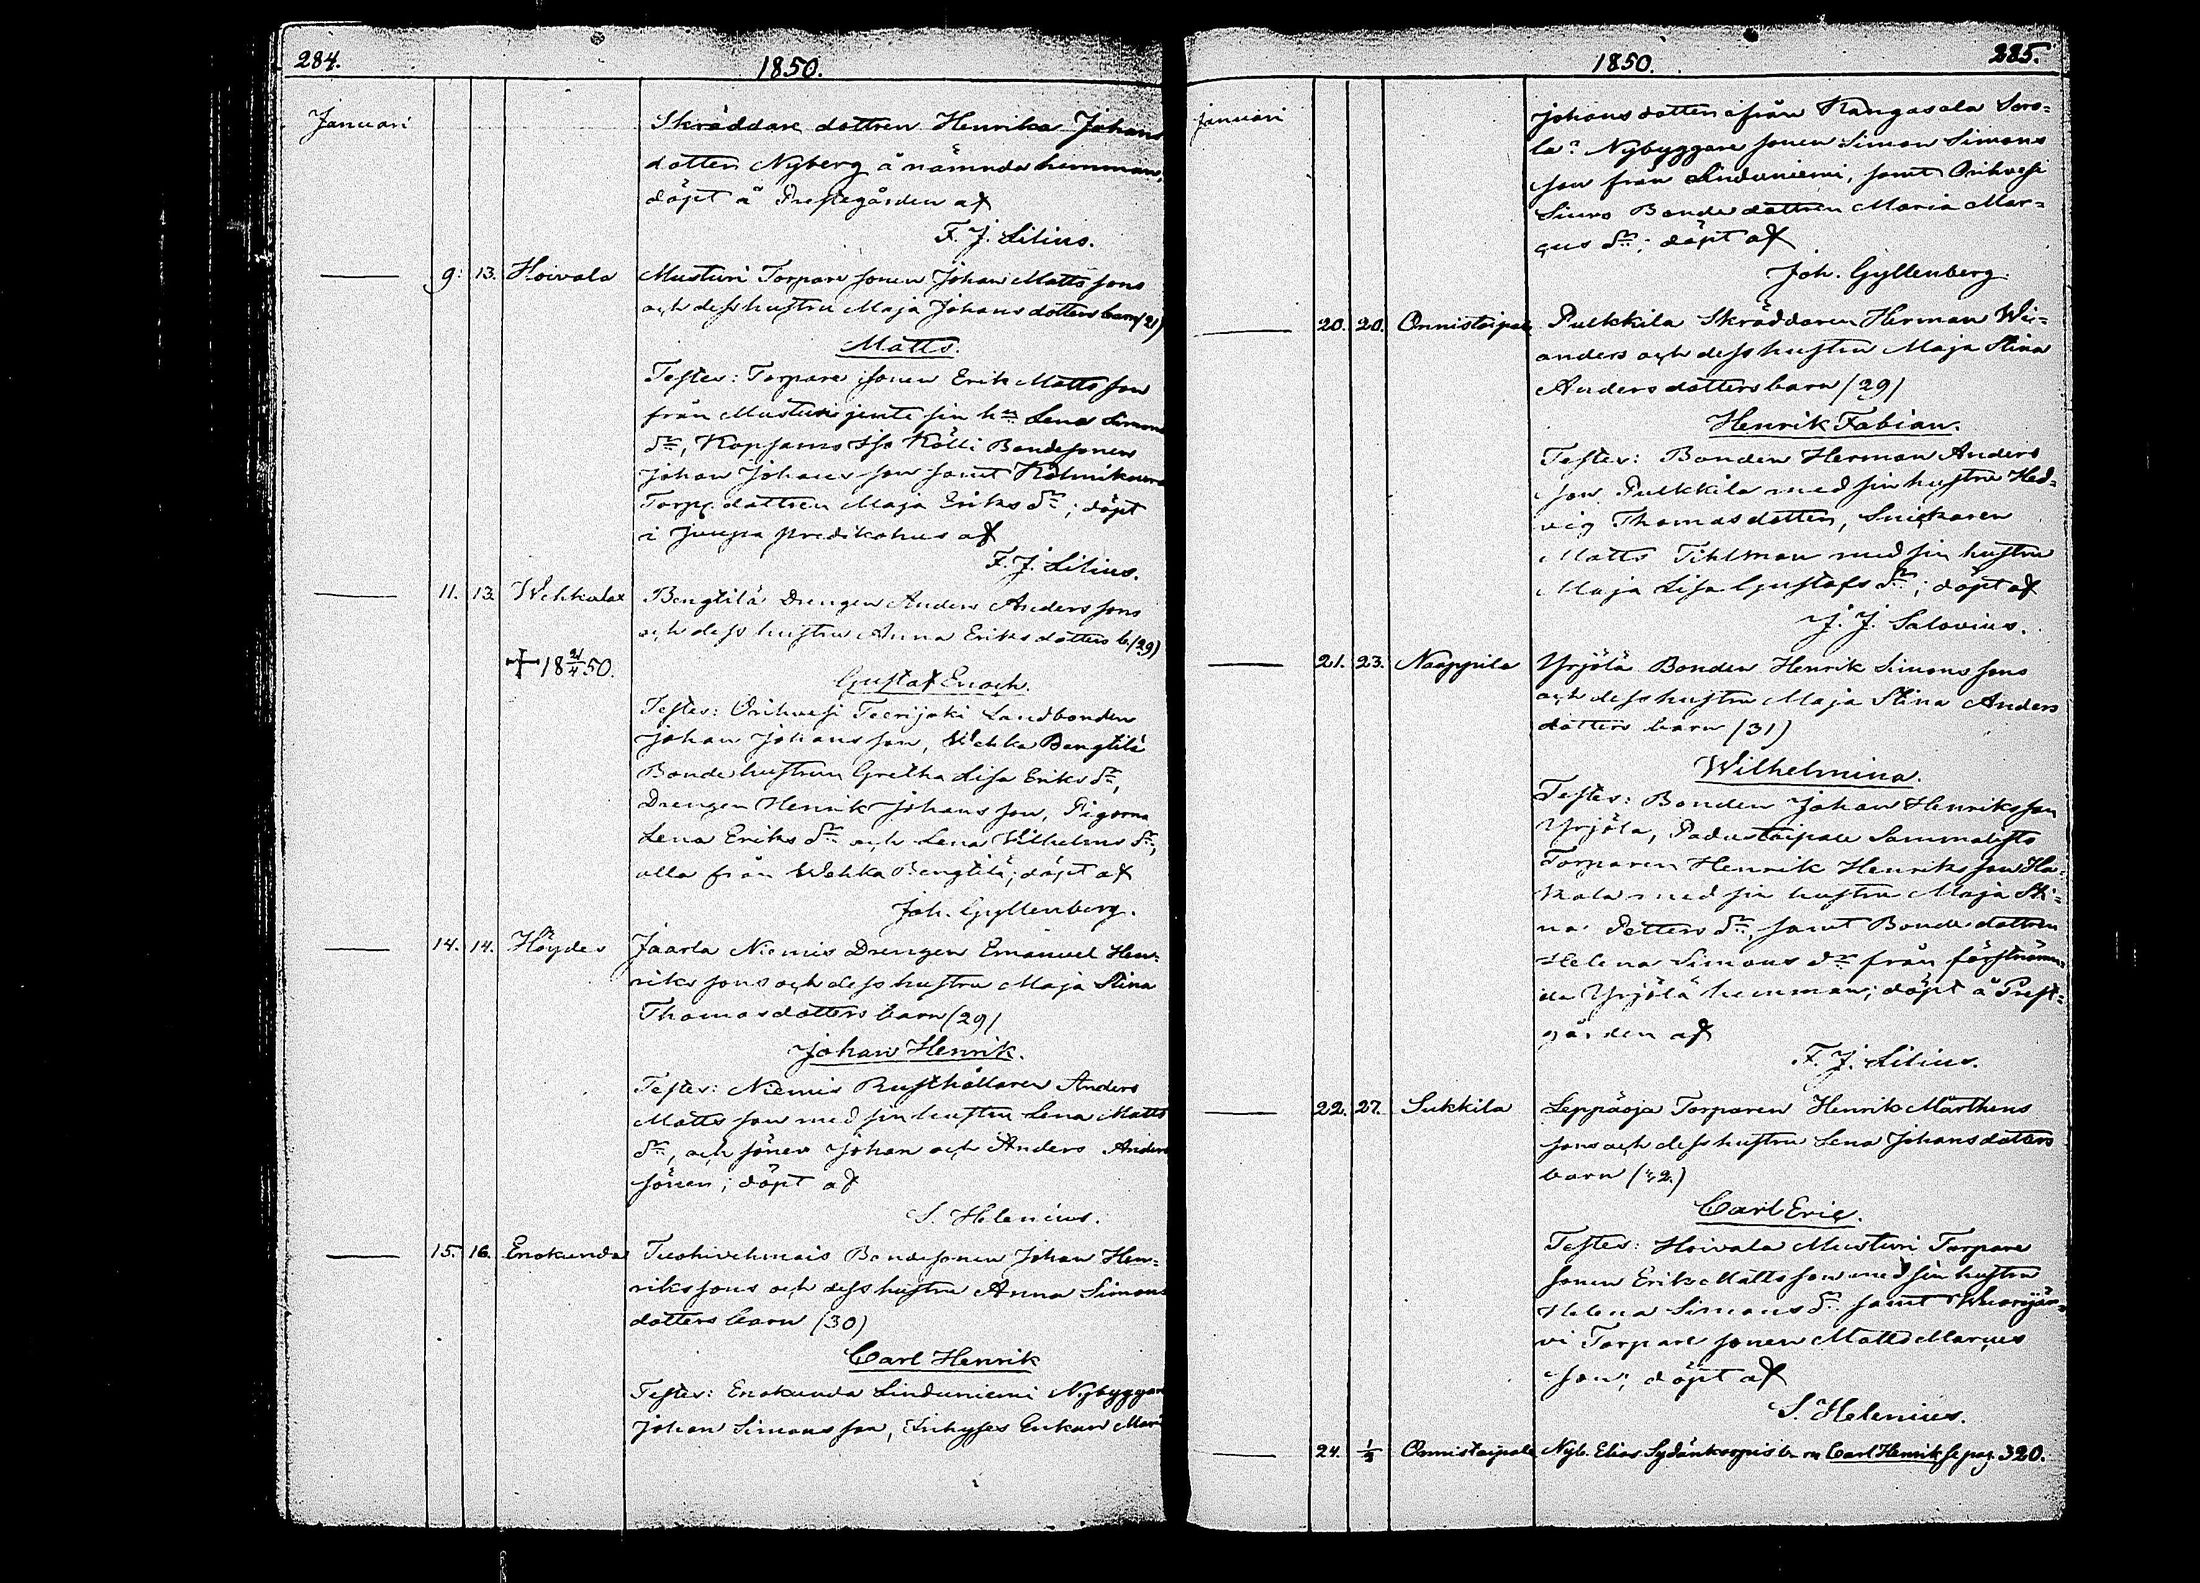 284.
1850.
Januari
Skräddare dottren Henrika Johans
dotter Nyberg å nämnda hemman,
döpt å Prestegården af
F. J. Lilius.
9. 13. Hoivala Musturi Torpare sonen Johan Matts sons
och dess hustru Maja Johans dotters barn (21)
Matts.
Testes: Torpare sonen Erik Matts son
från Musturi jemte sin h:u Lena Simons
d:r, Kopsamo Iso Kölli Bondesonen
Johan Johans son samt
Torp. dottren Maja Eriks d:r; döpt
i Juupa predikohus af
F. J. Lilius.
11. 13. Wehkalax Bengtilä Drengen Anders Anders sons
och dess hustru Anna Eriks dotters b. (29)
+ 18 21/4 50.
Gustaf Enoch.
Testes: Orihvesi Teerijoki Landbonden
Johan Johans son, Wehka Bengtilä
Bonde hustrun Gretha Lisa Eriks d:r,
Drengen Henrik Johans son, Pigorna
Lena Eriks d:r och Lena Wilhelms d:r,
alla från Wehka Bengtilä; döpt af
Joh. Gyllenberg.
14. 14. Höydes Jaarla Niemis Drengen Emanuel Hen-
riks sons och dess hustru Maja Stina
Thomas dotters barn (29)
Johan Henrik.
Testes: Niemis Rusthållaren Anders
Matts son med sin hustru Lena Matts
d:r, och söner Johan och Anders Anders
söner; döpt af
S. Helenius.
15. 16. Enokunda Tuohivehmais Bondesonen Johan Hen-
riks sons och dess hustru Anna Simons
dotters barn (30)
Carl Henrik
Testes: Enokunda Linduniemi Nybyggare
Johan Simons son, Enkan Mari
1850.
285.
Januari
Johans dotter ifrån Kangasala Soro-
la? Nybyggare sonen Simon Simons
son från Linduniemi, samt Orihvesi
Siuro Bonde dottren Maria Mar-
cus d:r; döpt af
Joh. Gyllenberg.
20. 20. Onnistaipale Pulkkila Skräddaren Herman Wi-
anders och dess hustru Maja Stina
Anders dotters barn (29)
Henrik Fabian.
Testes: Bonden Herman Anders
son Pulkkila med sin hustru Hed-
vig Thomas dotter, Snickaren
Matts Tihlman med sin hustru
Maja Lisa Gustafs d:r; döpt af
J. J. Salovius.
21. 23. Naappila Yrjölä Bonden Henrik Simons sons
och dess hustru Maja Stina Anders
dotters barn (31)
Wilhelmina.
Testes: Bonden Johan Henriks son
Yrjölä, Padustaipale Sammalisto
Torparen Henrik Henriks son Ha-
kala med sin hustru Maja Sti-
na Petters d:r, samt Bonde dottren
Helena Simons d:r från förstnämn-
da Yrjölä hemman; döpt å Prest-
gården af
F. J. Lilius.
22. 27. Sukkila Leppäoja Torparen Henrik Märthens
sons och dess hustru Lena Johans dotters
barn (42)
Carl Eric.
Testes: Hoivala Musturi Torpare
sonen Erik Matts son med sin hustru
Helena Simons d:r samt Wuorijär-
vi Torpare sonen Matts Marcus
son; döpt af
S. Helenius.
24. Onnistaipale Nyb. Elias Sydänkorpis b. n. Carl Henrik se pag. 320.